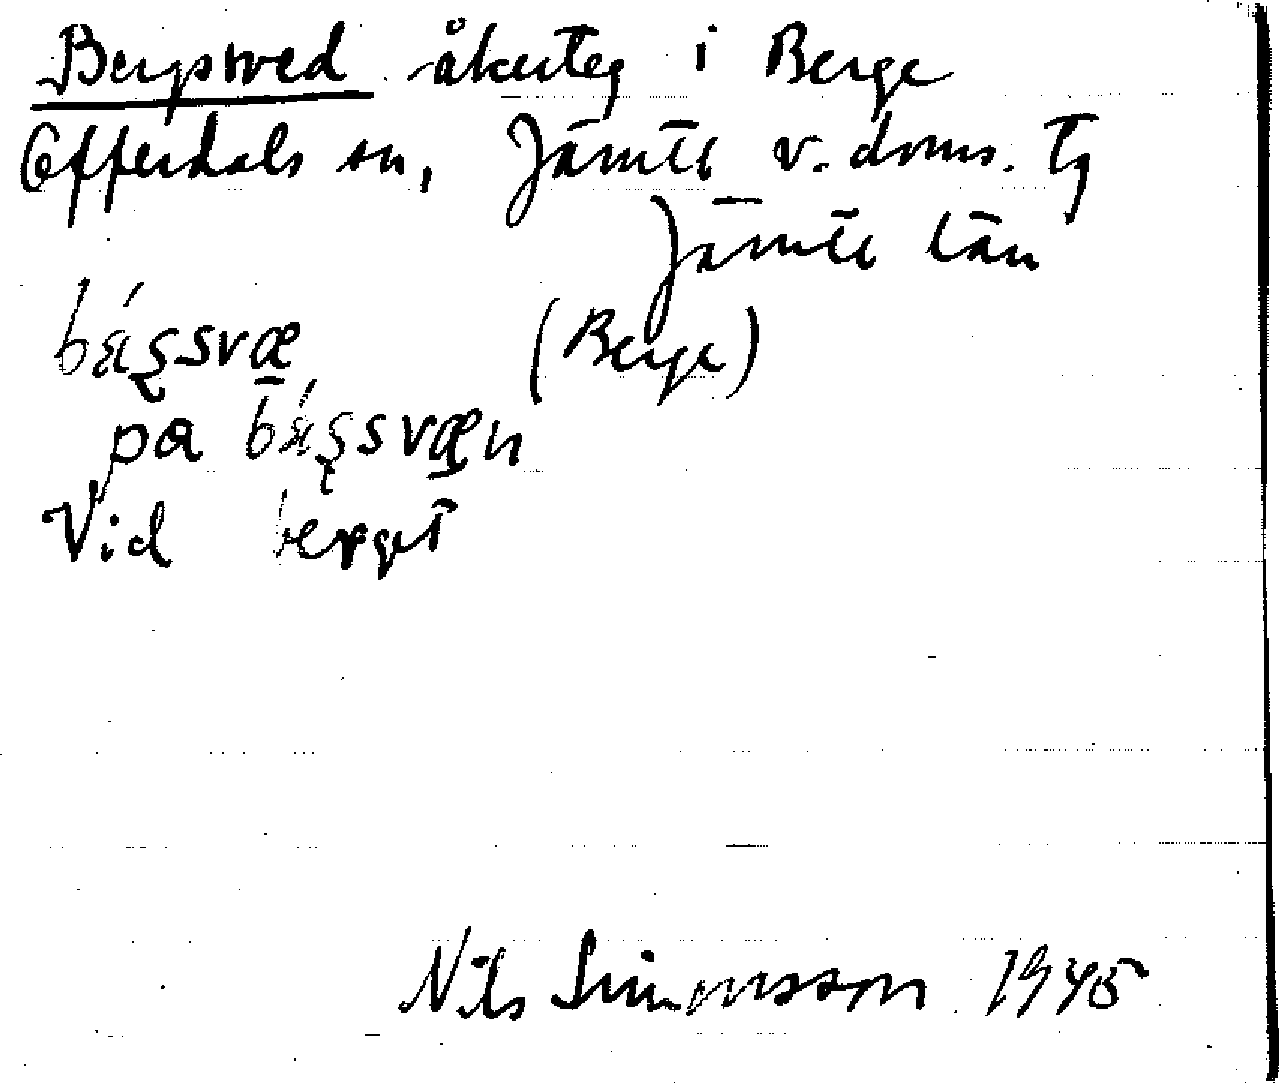 Bergsved åkerteg i Berge
Offerdals sn, Jämtl v. doms. Tg
Jämtl län
(Berge)
på
Vid berget
Nils Simonsson 1945